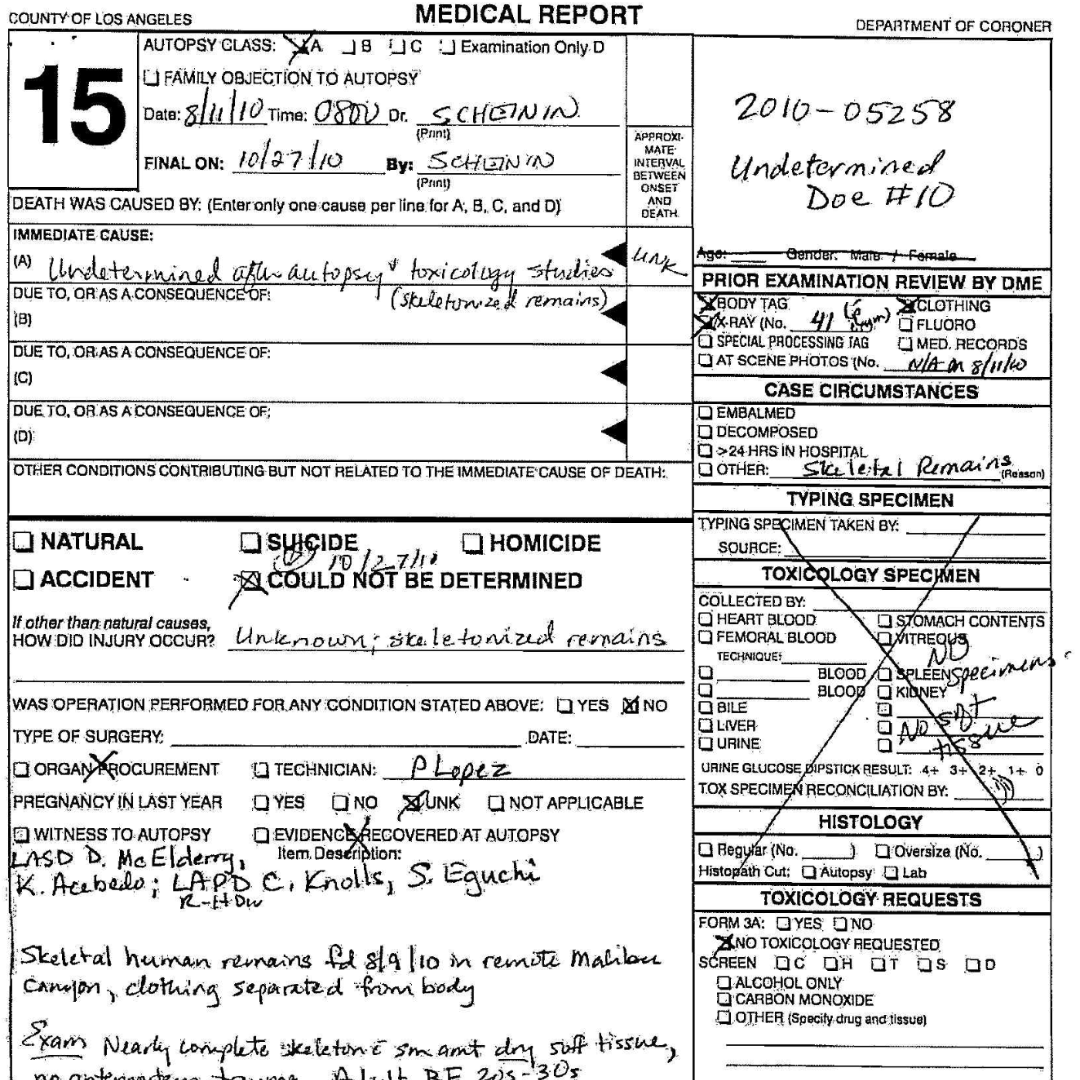 COUNTY OF LOS ANGELES
MEDICAL REPORT
DEPARTMENT OF CORONER
15
AUTOPSY CLASS: A B C Examination Only D
FAMILY OBJECTION TO AUTOPSY
Date: 8/11/10 Time: 0800 Dr. SCHEININ
(Print)
FINAL ON: 10/27/10 By: SCHEININ
(Print)
APPROXI-
MATE
INTERVAL
BETWEEN
ONSET
AND
DEATH
DEATH WAS CAUSED BY: (Enter only one cause per line for A, B, C, and D)
IMMEDIATE CAUSE:
(A) Undetermined after autopsy & toxicology studies
(skeletonized remains)
UNK
DUE TO, OR AS A CONSEQUENCE OF:
(B)
DUE TO, OR AS A CONSEQUENCE OF:
(C)
DUE TO, OR AS A CONSEQUENCE OF:
(D)
OTHER CONDITIONS CONTRIBUTING BUT NOT RELATED TO THE IMMEDIATE CAUSE OF DEATH:
NATURAL SUICIDE HOMICIDE
10/27/10
ACCIDENT COULD NOT BE DETERMINED
If other than natural causes,
HOW DID INJURY OCCUR? Unknown; skeletonized remains
WAS OPERATION PERFORMED FOR ANY CONDITION STATED ABOVE: YES NO
TYPE OF SURGERY: DATE:
ORGAN PROCUREMENT TECHNICIAN: P Lopez
PREGNANCY IN LAST YEAR YES NO UNK NOT APPLICABLE
WITNESS TO AUTOPSY EVIDENCE RECOVERED AT AUTOPSY
Item Description:
LASD D. McElderry,
K. Acebedo; LAPD C. Knolls, S. Eguchi
R-HDW
Skeletal human remains fd 8/9/10 in remote Malibu
Canyon, clothing separated from body
Exam Nearly complete skeleton c sm amt dry soft tissue,
no antemortem trauma. Adult BF 20s-30s
2010-05258
Undetermined
Doe #10
Age: Gender: Male / Female
PRIOR EXAMINATION REVIEW BY DME
BODY TAG CLOTHING
X-RAY (No. 41 ) FLUORO
SPECIAL PROCESSING TAG MED. RECORDS
AT SCENE PHOTOS (No. N/A on 8/11/10
CASE CIRCUMSTANCES
EMBALMED
DECOMPOSED
>24 HRS IN HOSPITAL
OTHER: Skeletal Remains (Reason)
TYPING SPECIMEN
TYPING SPECIMEN TAKEN BY:
SOURCE:
TOXICOLOGY SPECIMEN
COLLECTED BY:
HEART BLOOD STOMACH CONTENTS
FEMORAL BLOOD VITREOUS
TECHNIQUE: NO
BLOOD SPLEEN specimens
BLOOD KIDNEY
BILE
LIVER No soft
URINE tissue
URINE GLUCOSE DIPSTICK RESULT: 4+ 3+ 2+ 1+ 0
TOX SPECIMEN RECONCILIATION BY:
HISTOLOGY
Regular (No. ) Oversize (No. )
Histopath Cut: Autopsy Lab
TOXICOLOGY REQUESTS
FORM 3A: YES NO
NO TOXICOLOGY REQUESTED
SCREEN C H T S D
ALCOHOL ONLY
CARBON MONOXIDE
OTHER (Specify drug and tissue)